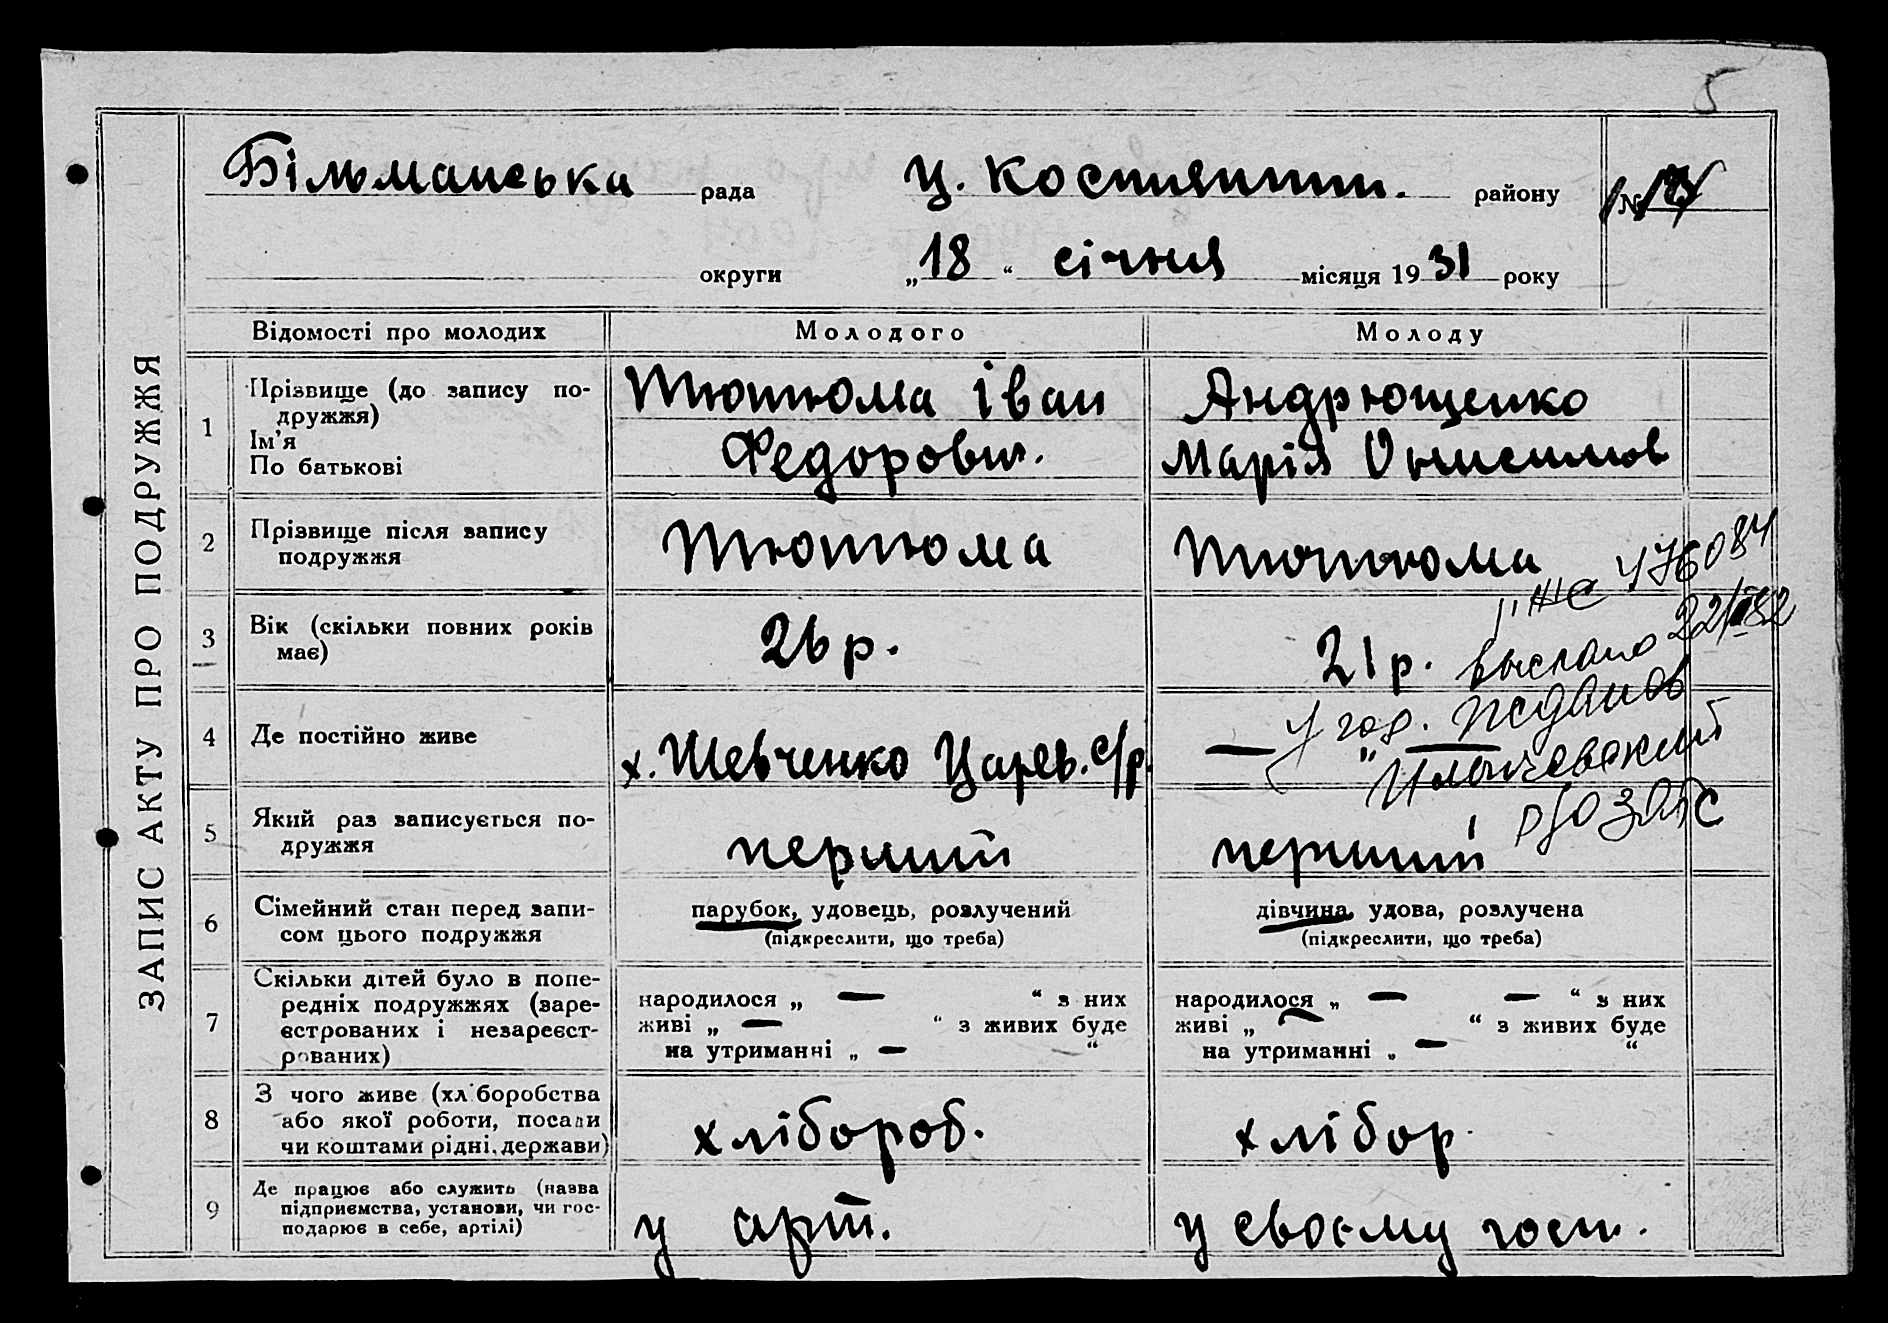 5
Більманська рада Ц. Костянтин. району №
округи „18“ січня місяця 1931 року
ЗАПИС АКТУ ПРО ПОДРУЖЖЯ
Відомості про молодих Молодого Молоду
1 Прізвище (до запису подружжя) Ім’я По батькові
Тютюма Іван
Федорович.
Андрющенко
Марія Онисимов
2 Прізвище після запису подружжя
Тютюма
Тютюма
3 Вік (скільки повних років має)
26 р.
21 р.
4 Де постійно живе
х. Шевченко Царев. с/р.
—„—
ЖС 476084
выслано 22/ 82
у гор. Жданов
Ильичевский
р/о ЗАГС
5 Який раз записується подружжя
перший
перший
6 Сімейний стан перед записом цього подружжя
парубок, удовець, розлучений
(підкреслити, що треба)
дівчина, удова, розлучена
(підкреслити, що треба)
7 Скільки дітей було в попередніх подружжях (зареєстрованих і незареєстрованих)
народилося „ — “ з них
живі „ — “ з живих буде
на утриманні „ — “
народилося „ — — “ з них
живі „ — “ з живих буде
на утриманні „ — “
8 З чого живе (хліборобства або якої роботи, посади чи коштами рідні, держави)
хлібороб.
хлібор.
9 Де працює або служить (назва підприємства, установи, чи господарює в себе, артілі)
у арт.
у своєму госп.